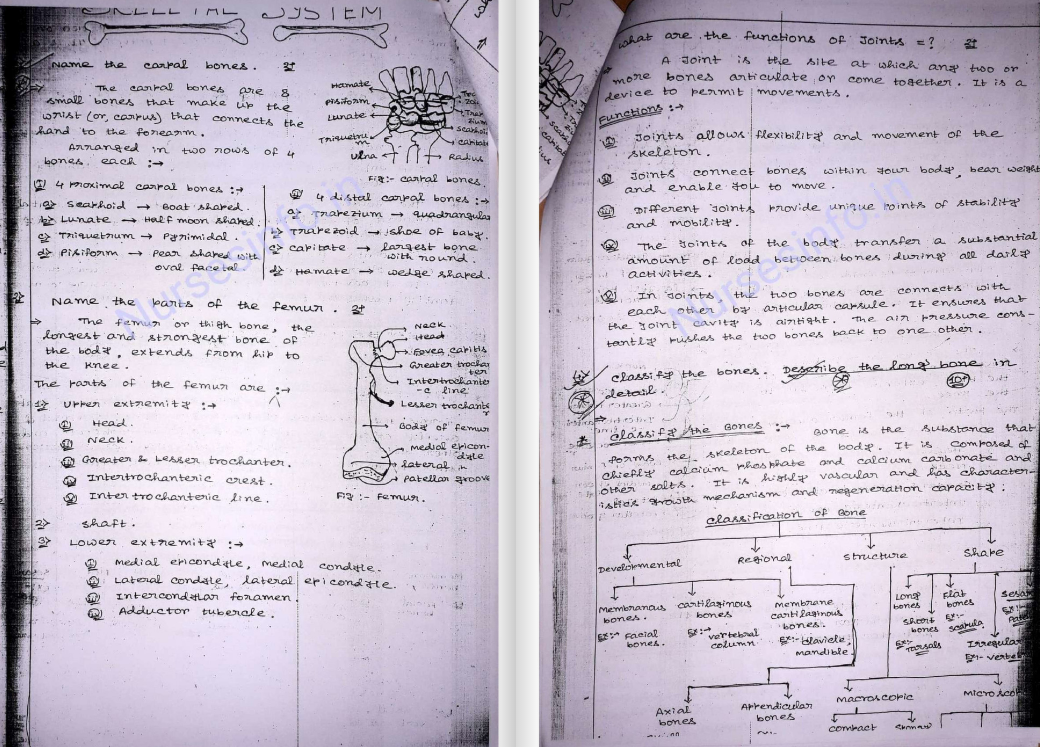 SKELETAL SYSTEM
Name the carpal bones. 2+
The carpal bones are 8
small bones that make up the
wrist (or, carpus) that connects the
hand to the forearm.
Arranged in two rows of 4
bones each :→
Hamate
Pisiform
Lunate
Triquetru
m
Ulna
Radius
Scaphoid
Fig:- carpal bones.
4 proximal carpal bones :→
a> Scaphoid → Boat shaped.
b> Lunate → Half moon shaped.
c> Triquetrum → Pyrimidal.
d> Pisiform → Pear shaped with
oval facetal
4 distal carpal bones :→
a> Trapezium → quadrangular
b> Trapezoid → shoe of baby.
c> capitate → largest bone
with round.
d> Hamate → wedge shaped.
Name the parts of the femur. 2+
⇒ The femur or thigh bone, the
longest and strongest bone of
the body, extends from hip to
the knee.
The parts of the femur are :→
1> Upper extremity :→
(i) Head.
(ii) Neck.
(iii) Greater & Lesser trochanter.
(iv) Intertrochanteric crest.
(v) Inter trochanteric line.
2> shaft.
3> Lower extremity :→
(i) Medial epicondyle, medial condyle.
(ii) Lateral condyle, lateral epicondyle.
(iii) Intercondylar foramen.
(iv) Adductor tubercle.
Neck
Head
Fovea capitis
Greater trochan
ter
Intertrochanter
-c line
Lesser trochante
Body of femur
medial epicon-
dyle
lateral
patellar groove
Fig :- Femur.
Nursesinfo.in
What are the functions of Joints = ? 2+
A Joint is the site at which any two or
more bones articulate or come together. It is a
device to permit movements.
Functions :→
(i) Joints allows flexibility and movement of the
skeleton.
(ii) Joints connect bones within your body, bear weight
and enable you to move.
(iii) Different Joints provide unique points of stability
and mobility.
(iv) The Joints of the body transfer a substantial
amount of load between bones during all daily
activities.
(v) In Joints, the two bones are connects with
each other by articular capsule. It ensures that
the joint cavity is airtight. The air pressure cons-
tantly pushes the two bones back to one other.
4> Classify the bones. Describe the long bone in
detail. 10+
Classify the Bones :→ Bone is the substance that
forms the skeleton of the body. It is composed of
chiefly calcium phosphate and calcium carbonate and
other salts. It is highly vascular and has character-
istics growth mechanism and regeneration capacity.
Classification of Bone
Developmental Regional Structure Shape
Membranous
bones.
Ex:→ Facial
bones.
cartilaginous
bones
Ex:→ vertebral
column.
Membrane
cartilaginous
bones.
Ex:- Clavicle,
mandible.
Long
bones
short
bones
Ex:-
Tarsals
Flat
bones
Ex:-
Scapula
Irregular
Ex:- verteb
Axial
bones
Appendicular
bones
Macroscopic
Microscop
compact
Nursesinfo.in